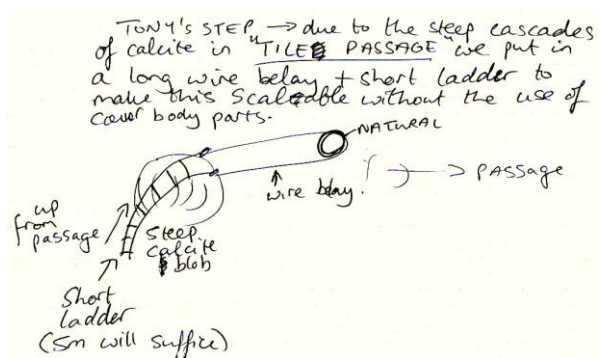 TONY'S STEP → due to the steep cascades
of calcite in "TILE PASSAGE" we put in
a long wire belay + short ladder to
make this scaleable without the use of
body parts.
NATURAL
wire belay.
→ PASSAGE
up
from
passage
steep
calcite
blob
Short
ladder
(5m will suffice)